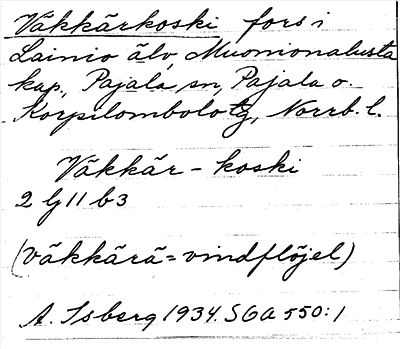 Väkkärkoski fors i
Lainio älv, Muonionalusta
kap., Pajala sn, Pajala o.
Korpilombolo tg, Norrb. l.
Väkkär-koski
2 G 11 b 3
(väkkärä = vindflöjel)
A. Isberg 1934. SOA 550:1